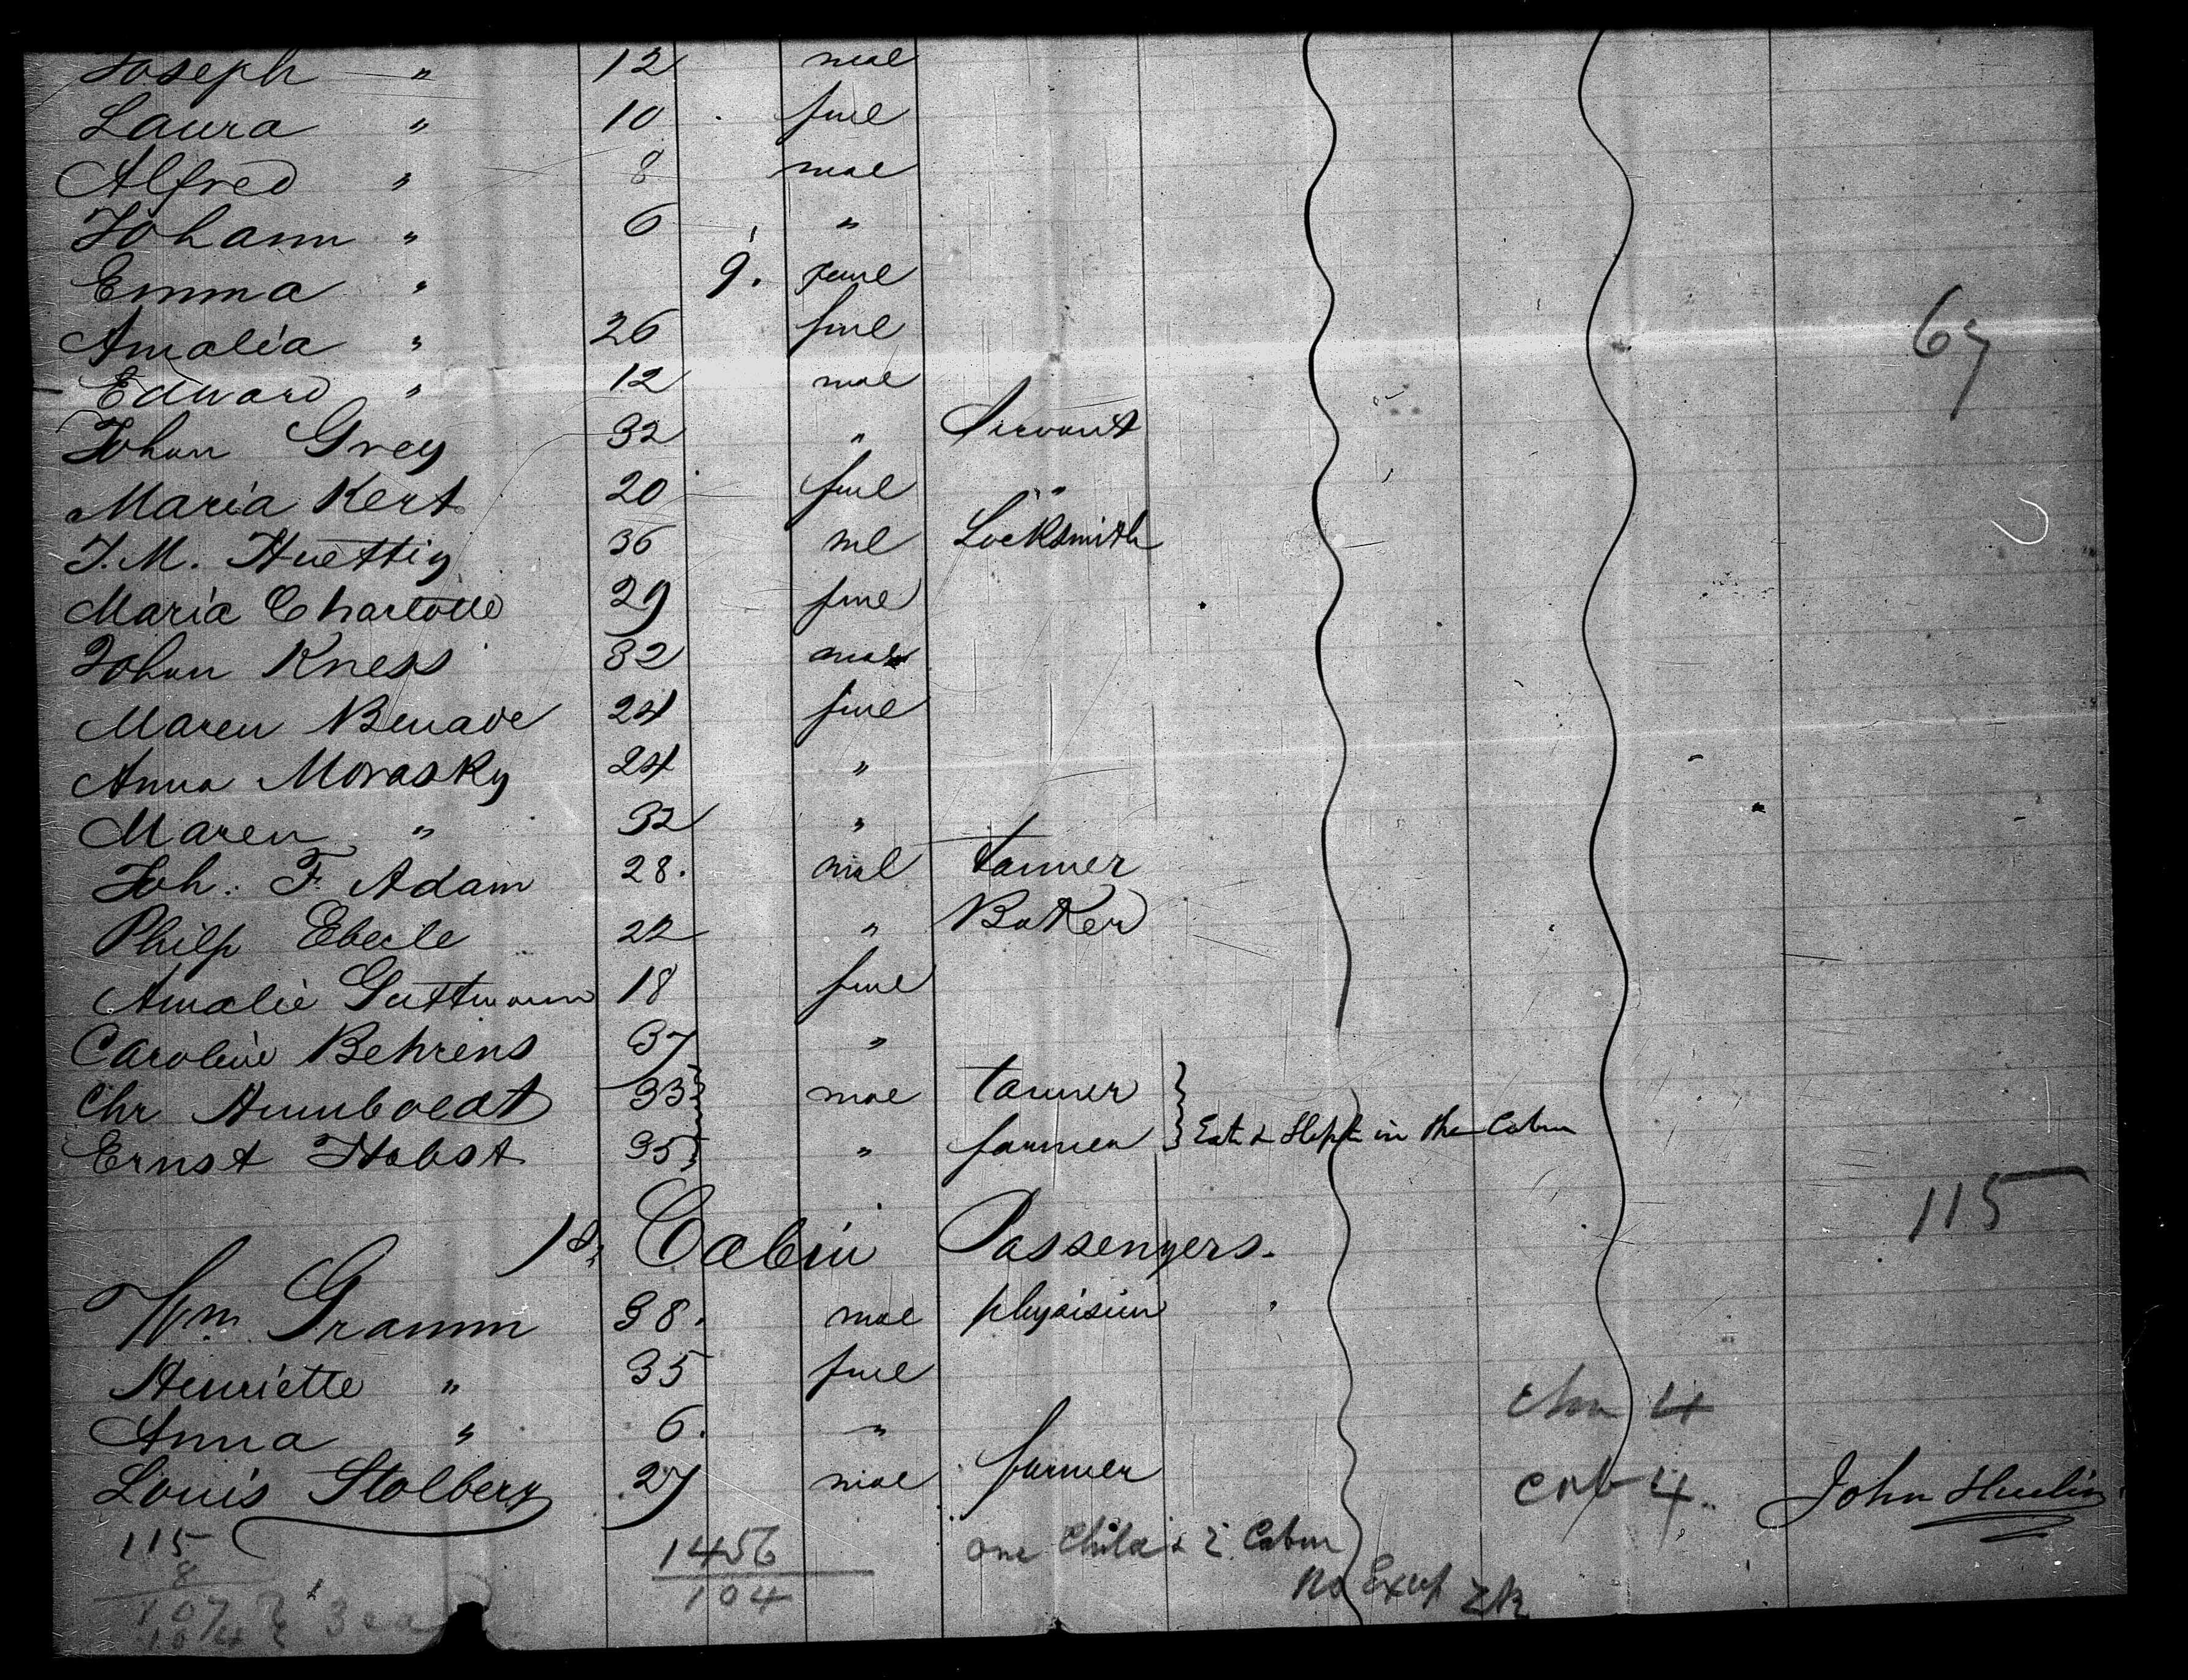 Joseph " 12 mal
Laura " 10 fml
Alfred " 8 mal
Johann " 6 "
Emma " 9. fml
Amalia " 26 fml
Edward " 12 mal
67
Johan Grey 32 " Servant
Maria Kert 20 fml "
J. M. Huettig 36 ml Locksmith
Maria Charlotte 29 fml
Johan Kness 32 mal
Maren Benade 24 fml
Anna Morasky 24 "
Maren " 32 "
Joh. F. Adam 28. mal tanner
Philp Eberle 22 " Baker
Amalie Guttmann 18 fml
Caroline Behrens 37 "
Chr Humboldt 33 mal tanner
Ernst Habst 35 " farmer } Eat & Slept in the Cabin
115
1st Cabin Passengers.
Wm. Gramm 38. mal physisien
Henriette " 35 fml
Anna " 6. "
4
Louis Stolberg 27 mal farmer
cab 4.
John
115
8
107
104
1456
104
one Child & 2 Cabin
No